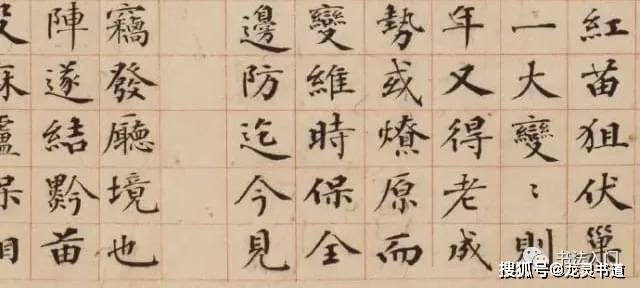 紅苗狙伏
一大變〻則
年又得老成
勢或燎原而
變維時保全
邊防迄今見
竊發廳境也
陣遂結黔苗
书法入门
搜狐号@龙灵书道